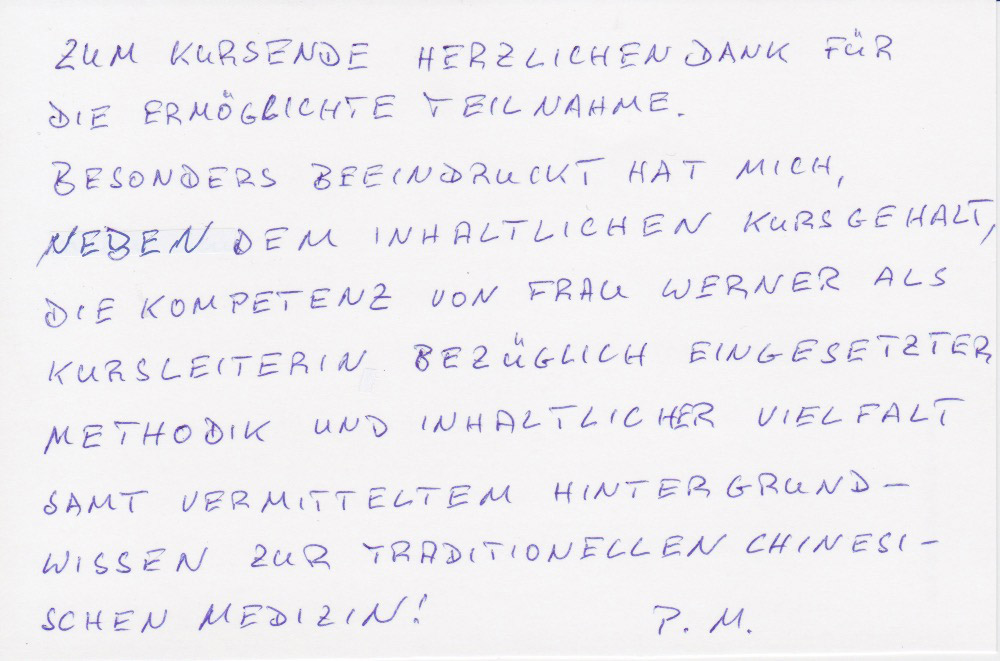 ZUM KURSENDE HERZLICHEN DANK FÜR
DIE ERMÖGLICHTE TEILNAHME.
BESONDERS BEEINDRUCKT HAT MICH,
NEBEN DEM INHALTLICHEN KURSGEHALT,
DIE KOMPETENZ VON FRAU WERNER ALS
KURSLEITERIN BEZÜGLICH EINGESETZTER
METHODIK UND INHALTLICHER VIELFALT
SAMT VERMITTELTEM HINTERGRUND-
WISSEN ZUR TRADITIONELLEN CHINESI-
SCHEN MEDIZIN! P. M.